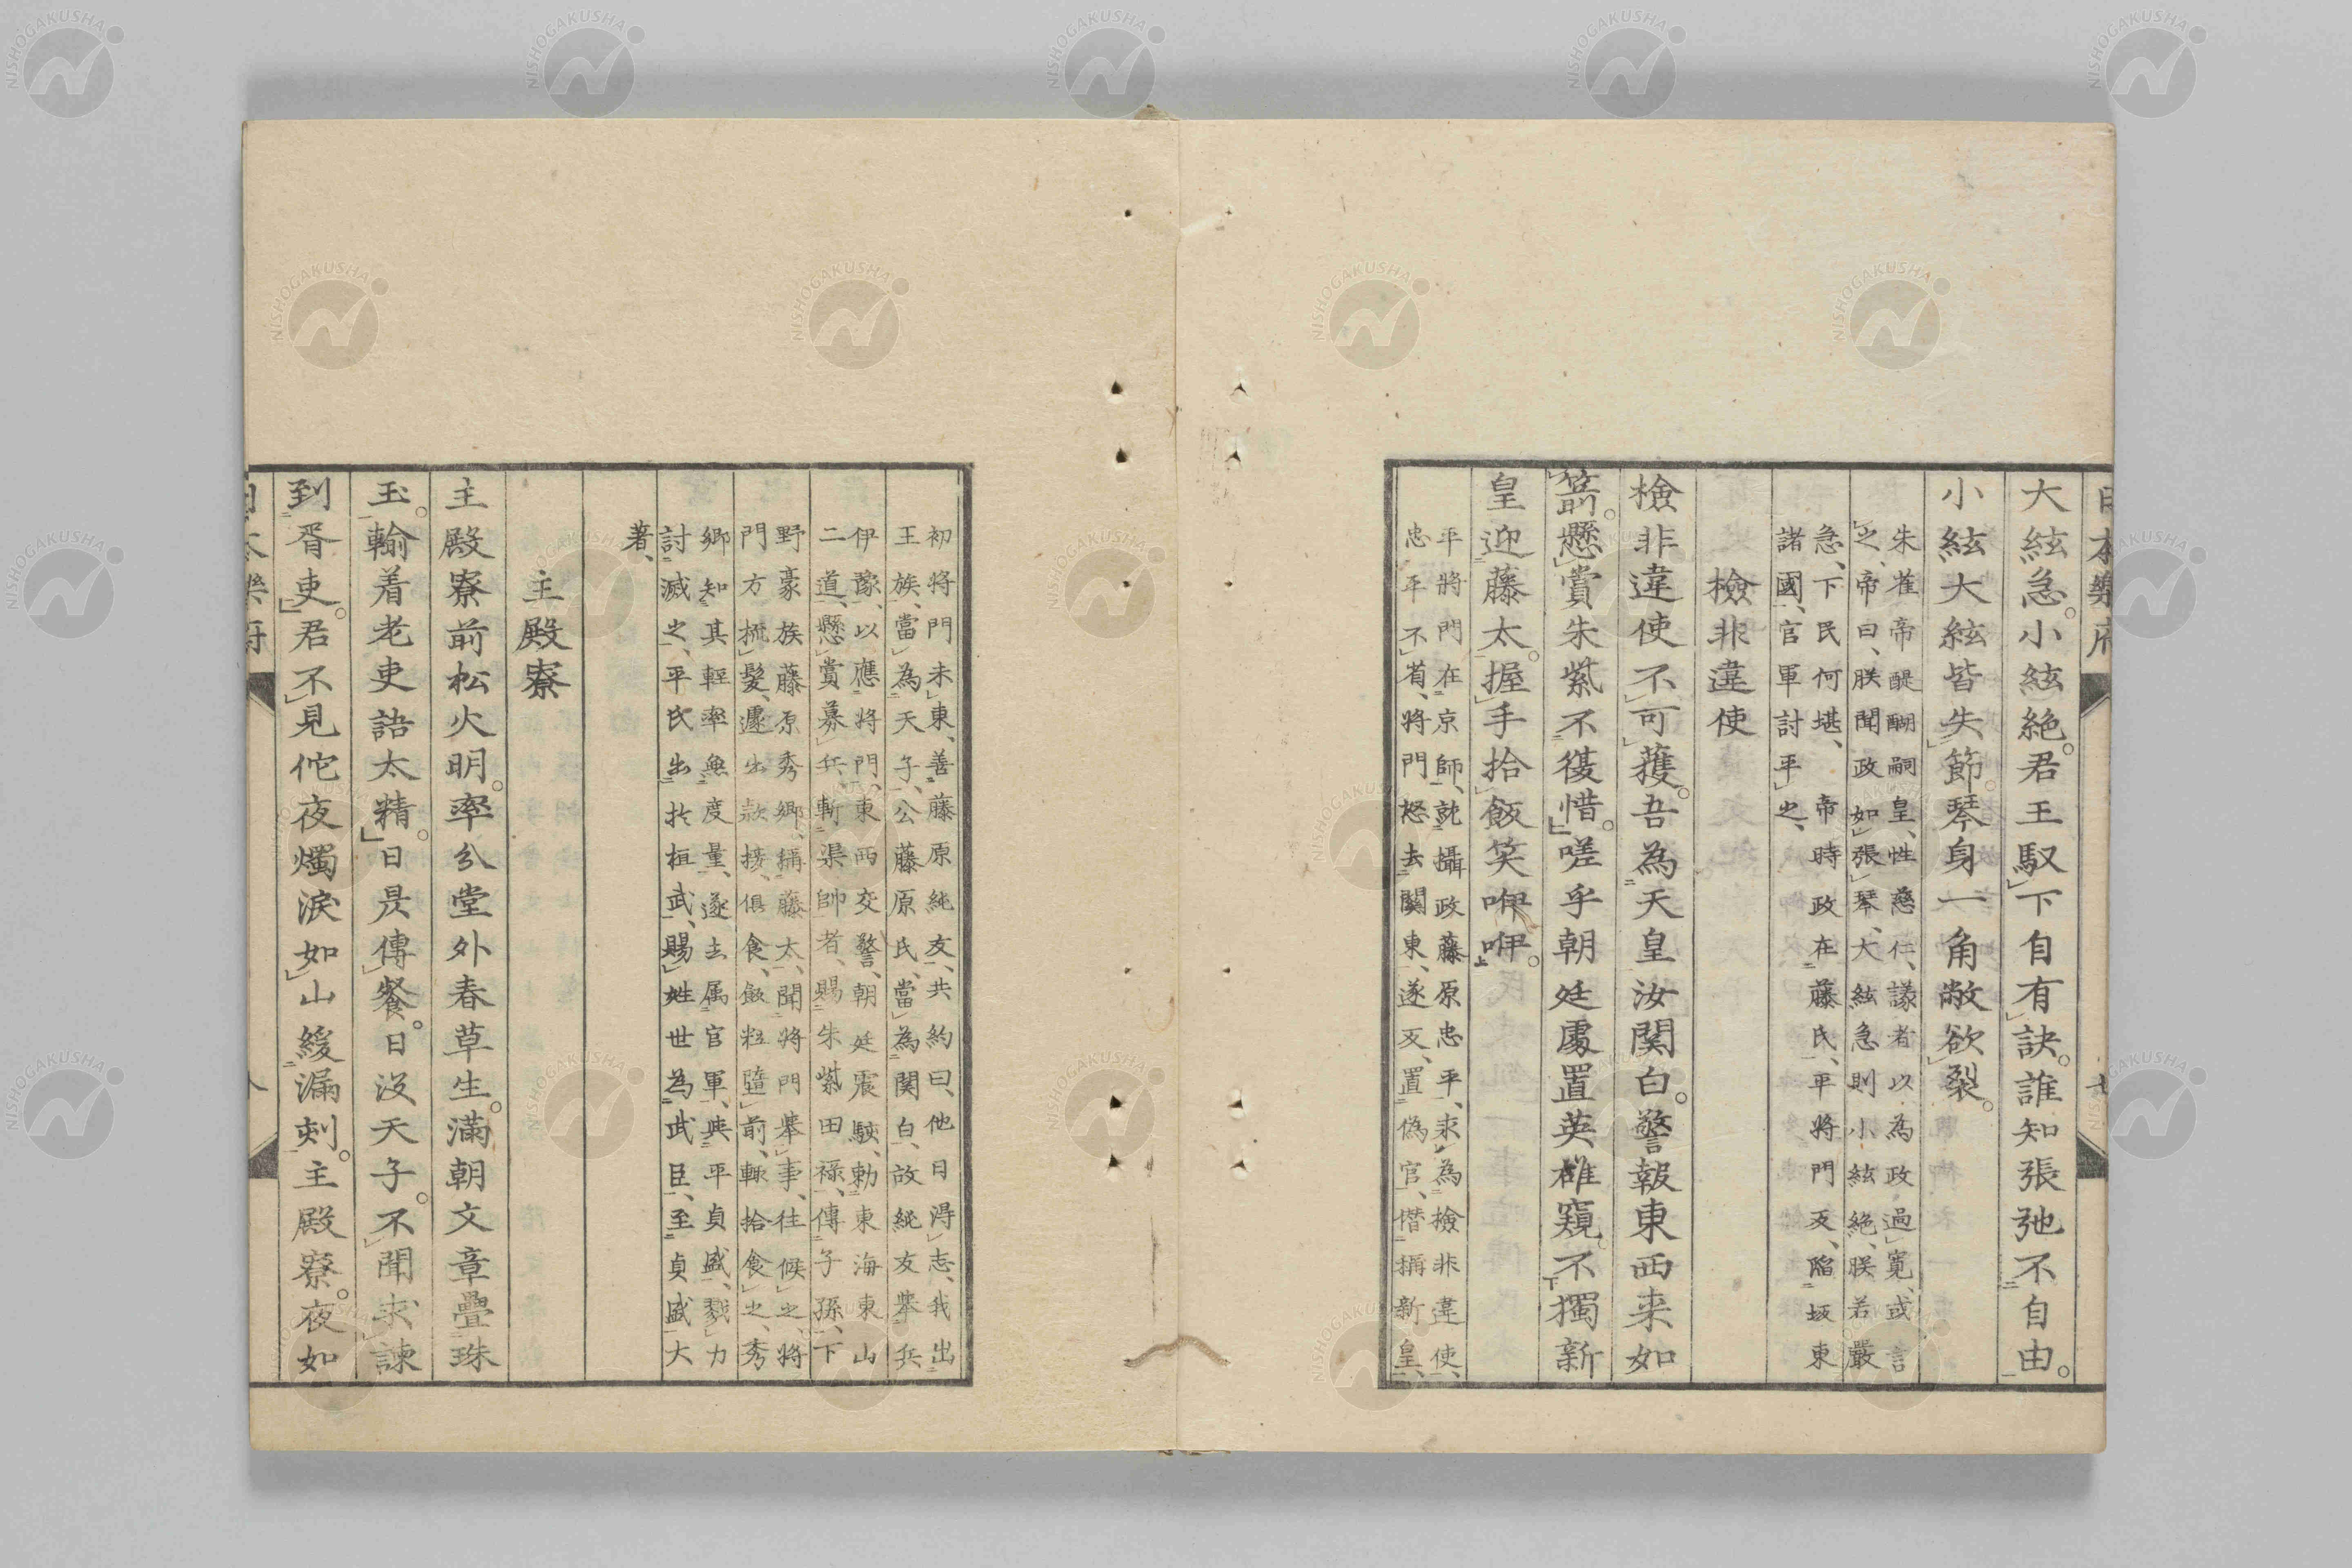 日本樂府
大絃急。小絃絶。君王馭下自有訣。誰知張弛不自由。
小絃大絃皆失節。琴身一角敝欲裂。
朱雀帝醍醐嗣皇、性慈仁、議者以為政過寛、或言
之、帝曰、朕聞政如張琴、大絃急則小絃絶、朕若嚴
急、下民何堪、帝時政在藤氏、平將門反、陷坂東
諸國、官軍討平之、
檢非違使
檢非違使不可獲。吾為天皇汝関白。警報東西来如
箭。懸賞朱紫不復惜。嗟乎朝廷處置英雄窺。不獨新
皇迎藤太。握手拾飯笑咿咿。
平將門在京師、就攝政藤原忠平、求為檢非違使、
忠平不省、將門怒去関東、遂反、置偽官、僭稱新皇、
初將門未東、善藤原純友、共約曰、他日得志、我出
王族、當為天子、公藤原氏、當為関白、故純友舉兵
伊豫、以應將門、東西交警、朝廷震駭、勅東海東山
二道、懸賞募兵、斬渠帥者、賜朱紫田祿、傳子孫、下
野豪族藤原秀郷、稱藤太、聞將門舉事、往候之、將
門方梳髮、遽出款接、俱食、飯粒墮前、輙拾食之、秀
郷知其輕率無度量、遂去属官軍、與平貞盛、戮力
討滅之、平氏出於桓武、賜姓世為武臣、至貞盛大
著、
主殿寮
主殿寮前松火明。率分堂外春草生。滿朝文章疊珠
玉。輸着老吏語太精。日昃傳餐。日没天子。不聞求諫
到胥吏。君不見佗夜燭涙如山緩漏刻。主殿寮。夜如
日本樂府
NISHOGAKUSHA